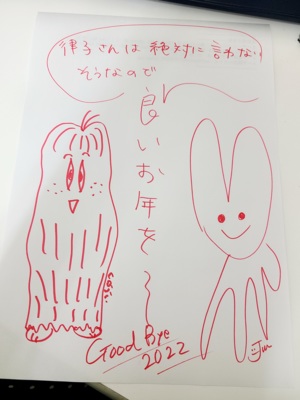 律子さんは絶対に言わない
そうなので
良いお年を〜
Good Bye
2022
Jun